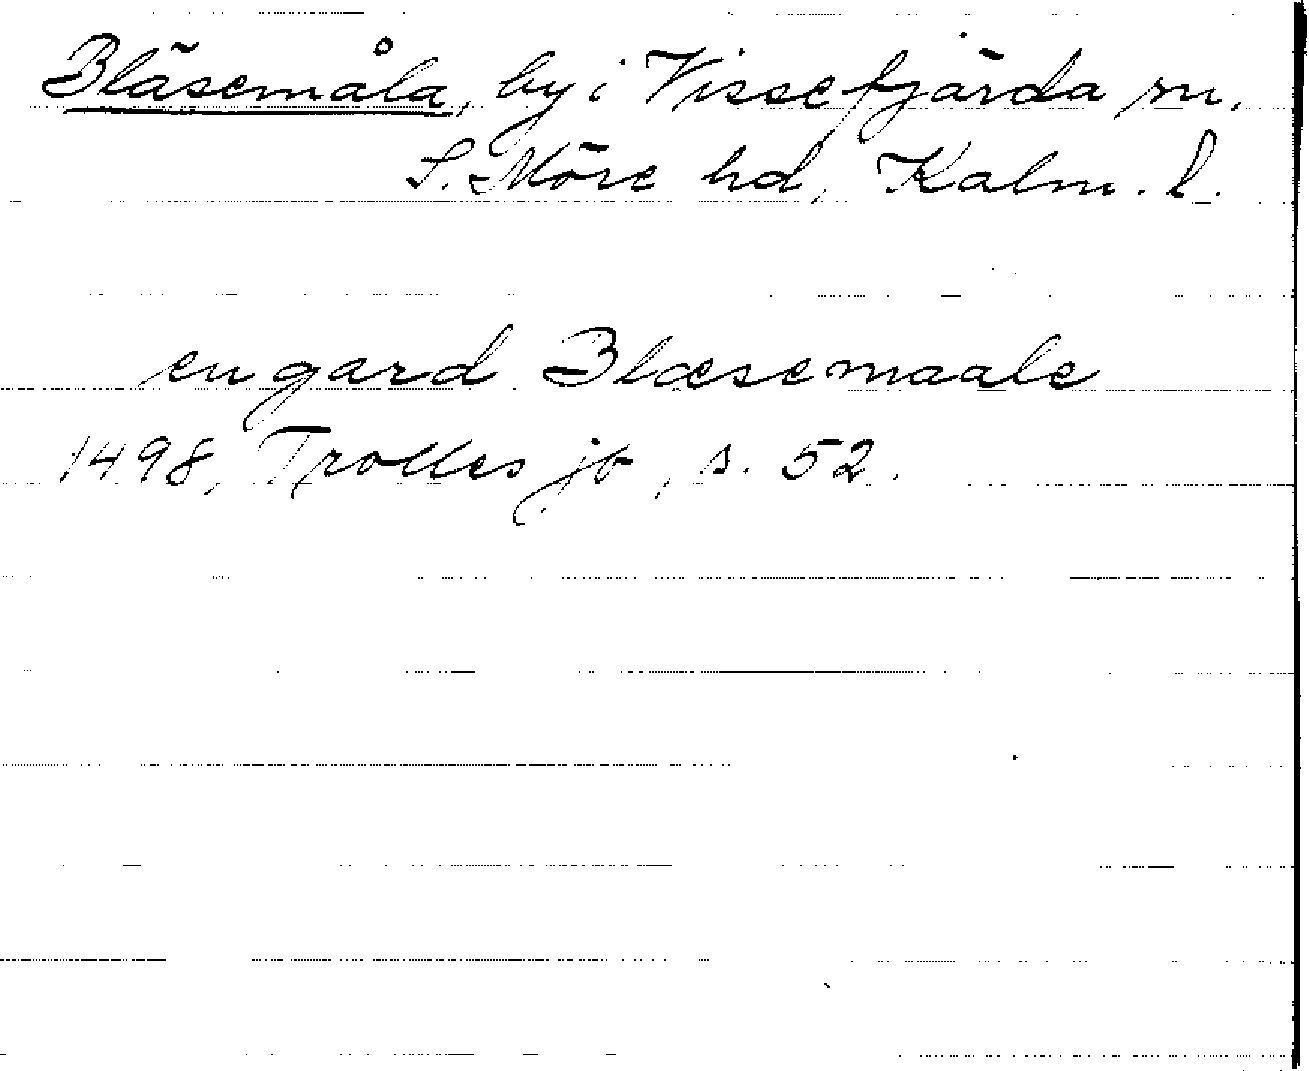 Bläsemåla, by i Vissefjärda sn,
S. Möre hd, Kalm. l.
en gard Blæsemaale
1498, Trolles jb, s. 52.